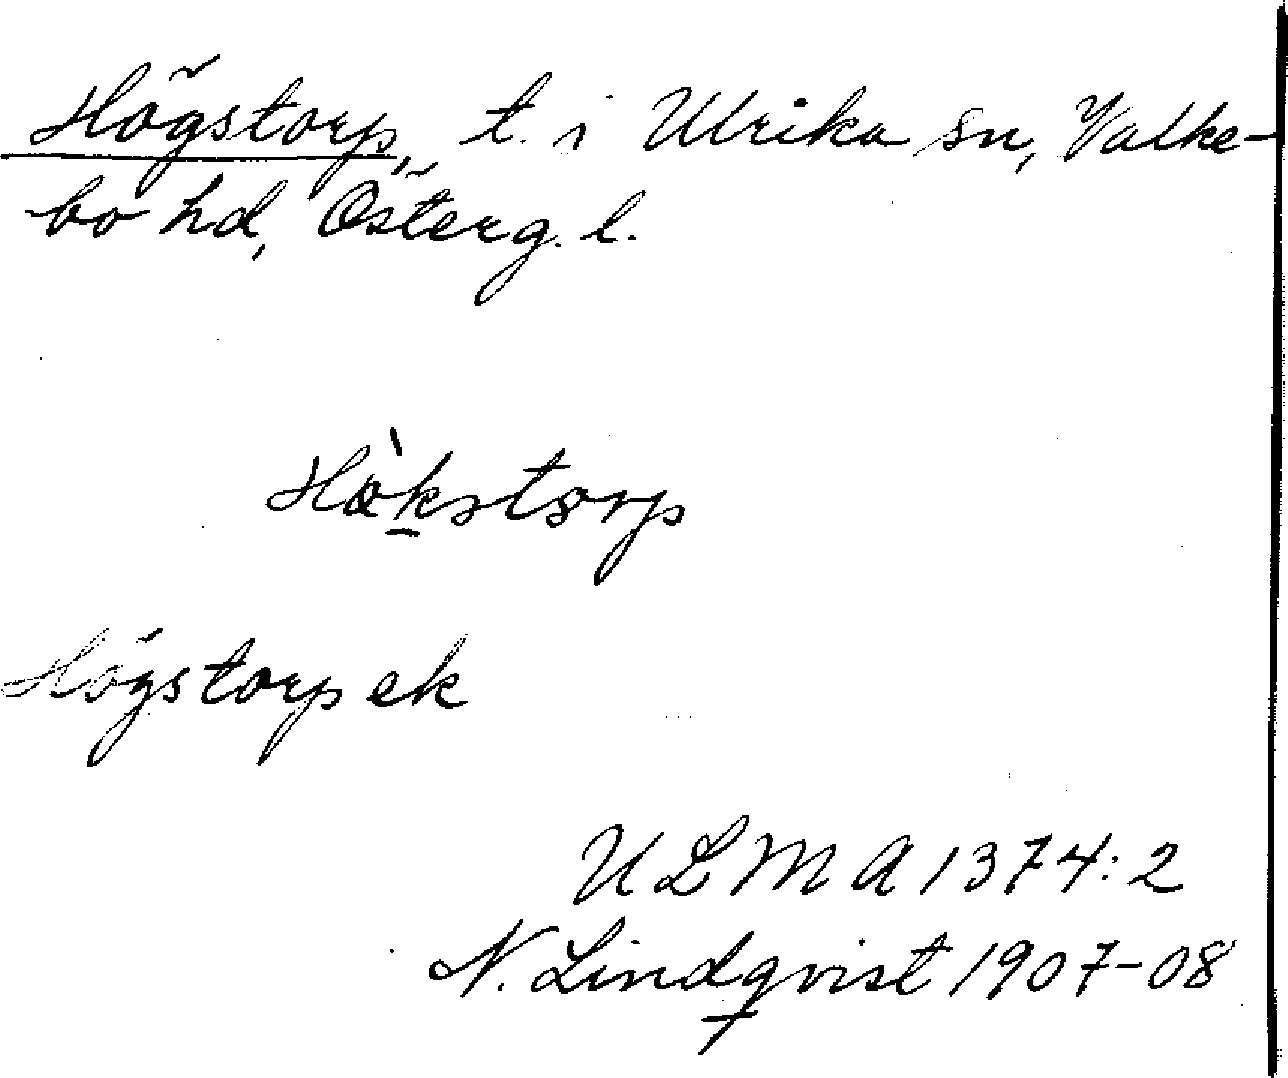 Högstorp, t. i Ulrika sn, Valke-
bo hd, Österg. l.
Hö̀kstorp
Högstorp ek
ULMA 1374:2
N. Lindqvist 1907-08